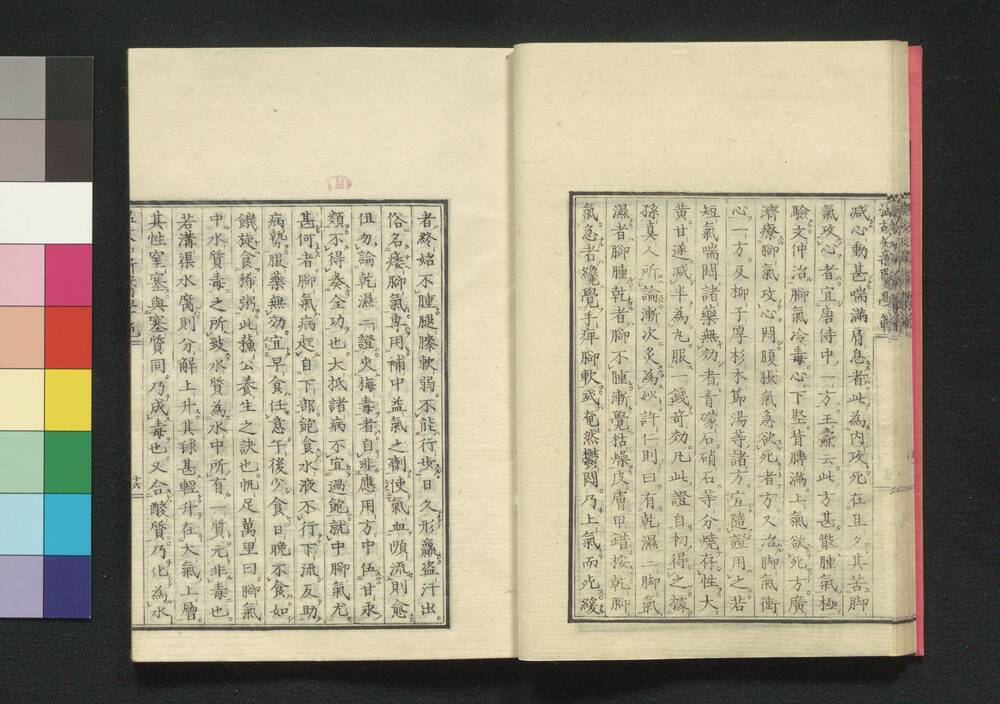 减心動甚喘滿肩息者此為内攻死在旦夕其苦脚
氣攻心者宜唐侍中一方王燾云此方甚散腫氣極
驗文仲治脚氣冷毒心下堅背膊滿上氣欲死方廣
濟療脚氣攻心悶腹脹氣急欲死者方又治脚氣衝
心一方及柳子厚杉木節湯等諸方宜隨證用之若
短氣喘悶諸藥無効者青礞石硝石等分燒存性大
黄甘遂减半為丸服一錢奇効凡此證自初得之據
孫真人所論漸次灸為妙許仁則曰有乾濕二脚氣
濕者脚腫乾者脚不腫漸覺枯燥皮膚甲錯按乾脚
氣急者纔覺手痺脚軟或奄然鬱悶乃上氣而死緩
者終始不腫腿膝軟弱不能行步日久形羸盗汗出
俗名痿脚氣専用補中益氣之劑使氣血順流則愈
但勿論乾濕二證夾梅毒者自非應用方中伍甘汞
類不得奏全功也大抵諸病不宜過飽就中脚氣尤
甚何者脚氣病起自下部飽食水液不行下流反助
病勢服藥無効宜早食任意午後少食日晚不食如
饑徒食稀粥此蘓公養生之訣也帆足萬里曰脚氣
中水質毒之所致水質為水中所有一質元非毒也
若溝渠水腐則分解上升其球甚輕升在大氣上層
其性窒塞與塞質同乃成毒也又合酸質乃化為水